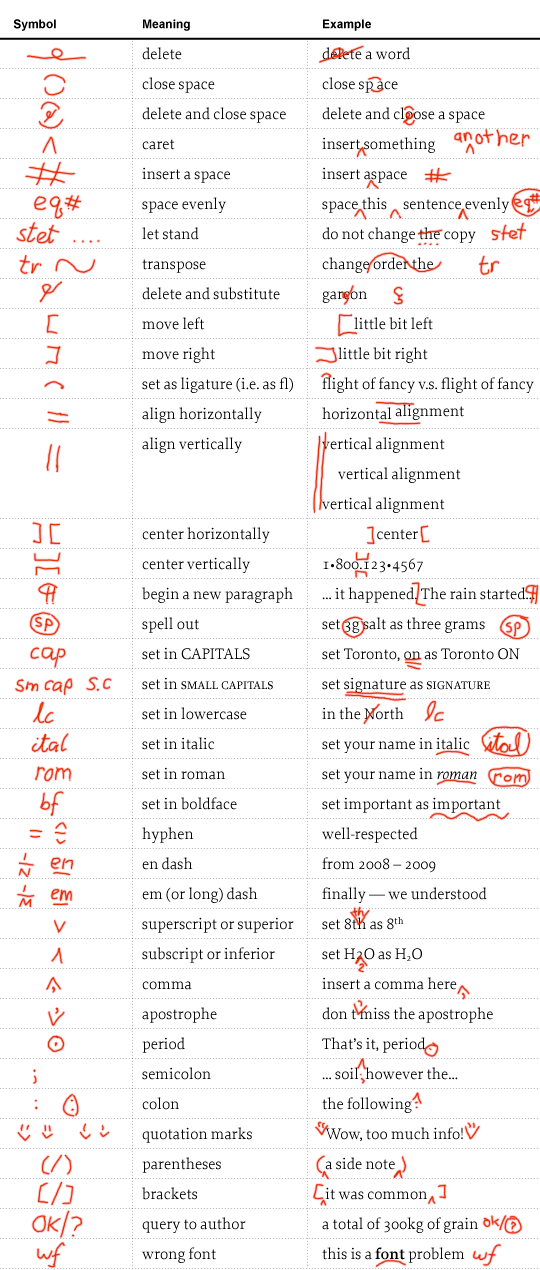 Symbol Meaning Example
delete delete a word
close space close sp ace
delete and close space delete and cloose a space
^ caret insert something another
# insert a space insert aspace #
eq# space evenly space this sentence evenly eq#
stet .... let stand do not change the copy stet
tr transpose change order the tr
delete and substitute garson ç
[ move left [ little bit left
] move right ] little bit right
set as ligature (i.e. as fl) flight of fancy v.s. flight of fancy
= align horizontally horizontal alignment
|| align vertically vertical alignment
vertical alignment
vertical alignment
] [ center horizontally ] center [
center vertically 1•800.123•4567
¶ begin a new paragraph ... it happened. The rain started... ¶
sp spell out set 3g salt as three grams sp
cap set in CAPITALS set Toronto, on as Toronto ON
sm cap s.c set in SMALL CAPITALS set signature as SIGNATURE
lc set in lowercase in the North lc
ital set in italic set your name in italic ital
rom set in roman set your name in roman rom
bf set in boldface set important as important
= hyphen well-respected
1/N en en dash from 2008 – 2009
1/M em em (or long) dash finally — we understood
v superscript or superior set 8th as 8th
^ subscript or inferior set H2O as H₂O
, comma insert a comma here,
' apostrophe don t miss the apostrophe
. period That's it, period.
; semicolon ... soil; however the...
: : colon the following:
quotation marks "Wow, too much info!"
(/) parentheses (a side note)
[/] brackets [it was common]
OK/? query to author a total of 300kg of grain ok/?
wf wrong font this is a font problem wf